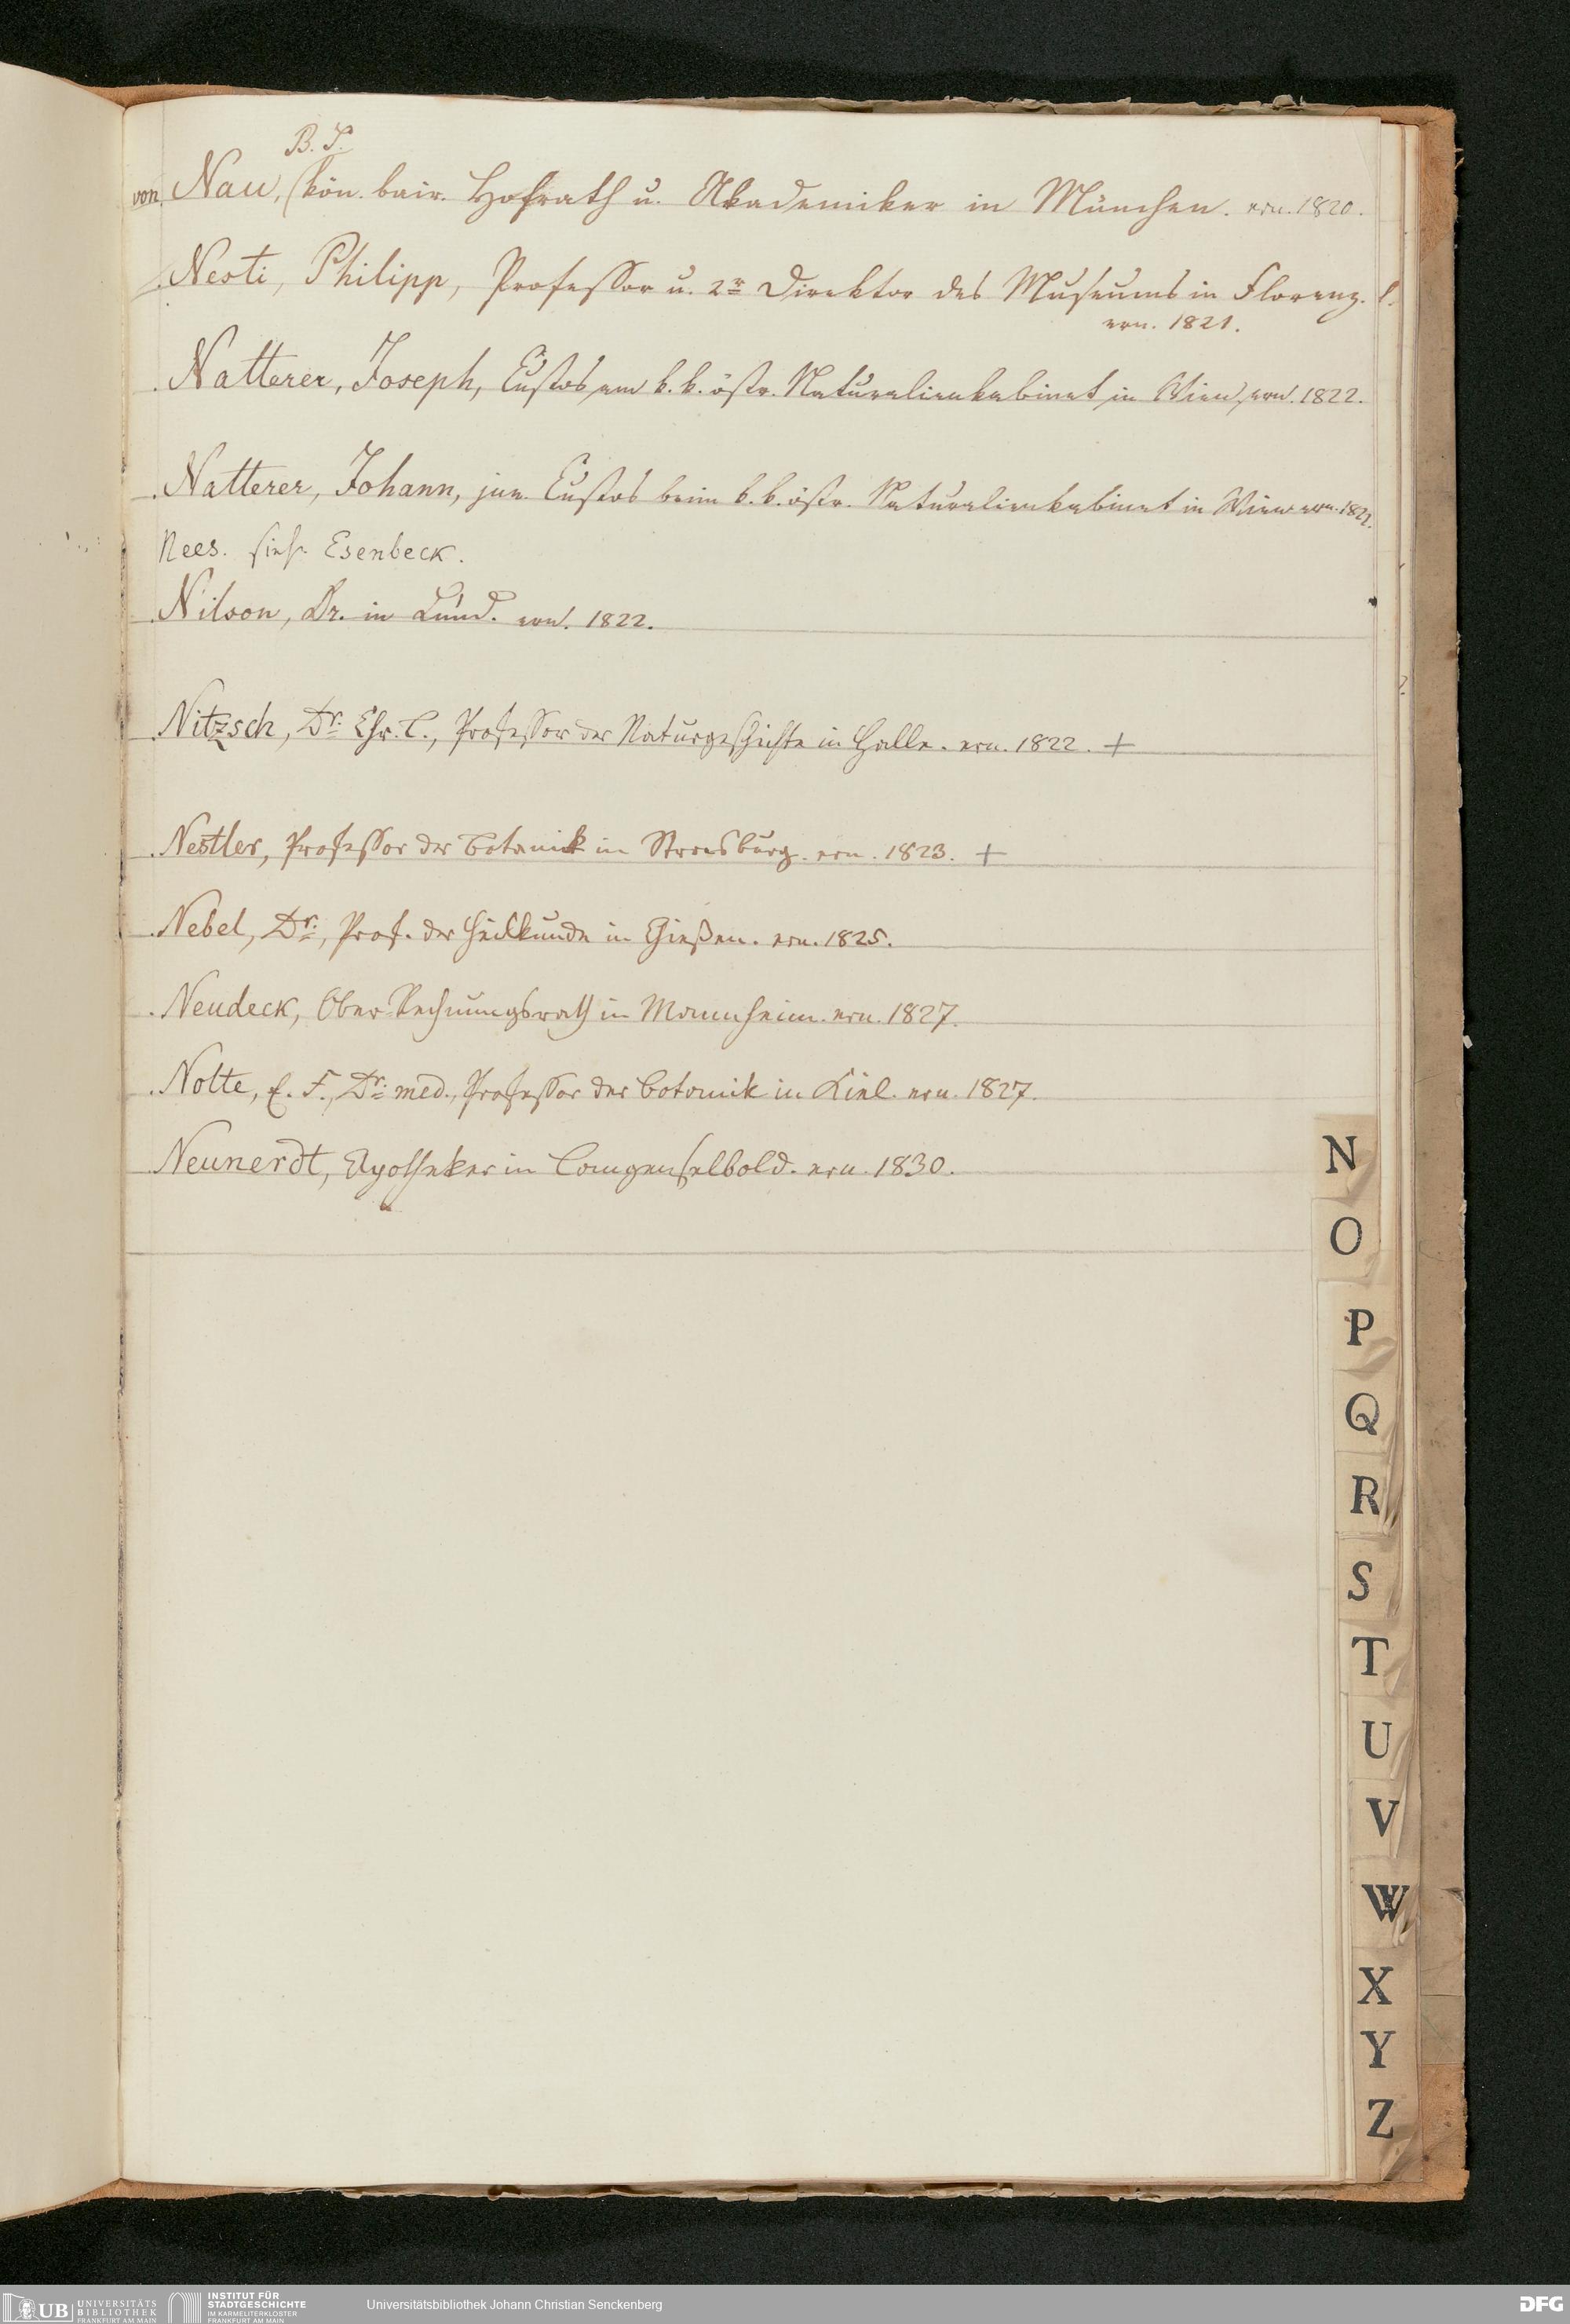 B. S.
von Nau, kön. bair. Hofrath u. Akademiker in München. ern. 1820.
Nesti, Philipp, Professor u. 2r Direktor des Museums in Florenz.
ern. 1821.
Natterer, Joseph, Custos am k. k. östr. Naturalienkabinet in Wien, ern. 1822.
Natterer, Johann, jun. Custos beim k. k. östr. Naturalienkabinet in Wien ern. 1822.
Nees. sieh. Esenbeck.
Nilson, Dr. in Lund. ern. 1822.
Nitzsch, Dr. Chr. L., Professor der Naturgeschichte in Halle. ern. 1822. +
Nestler, Professor der Botanik in Strasburg. ern. 1823. +
Nebel, Dr., Prof. der Heilkunde in Gießen. ern. 1825.
Neudeck, Ober Rechnungsrath in Mannheim. ern. 1827.
Nolte, E. F., Dr. med., Professor der Botanik in Kiel. ern. 1827.
Neunerdt, Apotheker in Langenselbold. ern. 1830.
N
O
P
Q
R
S
T
U
V
W
X
Y
Z
UB UNIVERSITÄTS
BIBLIOTHEK
FRANKFURT AM MAIN
INSTITUT FÜR
STADTGESCHICHTE
IM KARMELITERKLOSTER
FRANKFURT AM MAIN
Universitätsbibliothek Johann Christian Senckenberg
DFG